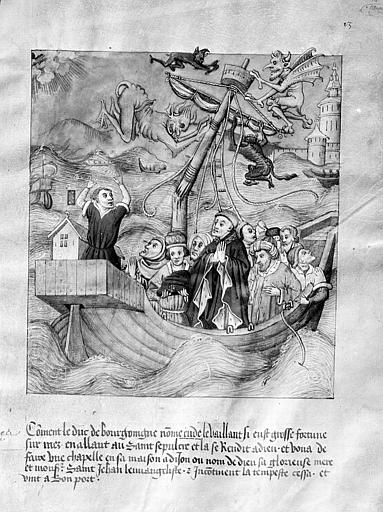 13
Cōment le duc de bourgoingne nōme eude le vaillant si eust grosse fortune
sur mer en allant au Saint sepulcre et la se Rendit a dieu · et voua de
faire vne chapelle en sa maison a diJon ou nom de dieu sa glorieuse mere
et mons&#x27; Saint Jehan leuuangeliste · 2 Incōtinent la tempeste cessa · et
vint a Bon port ·